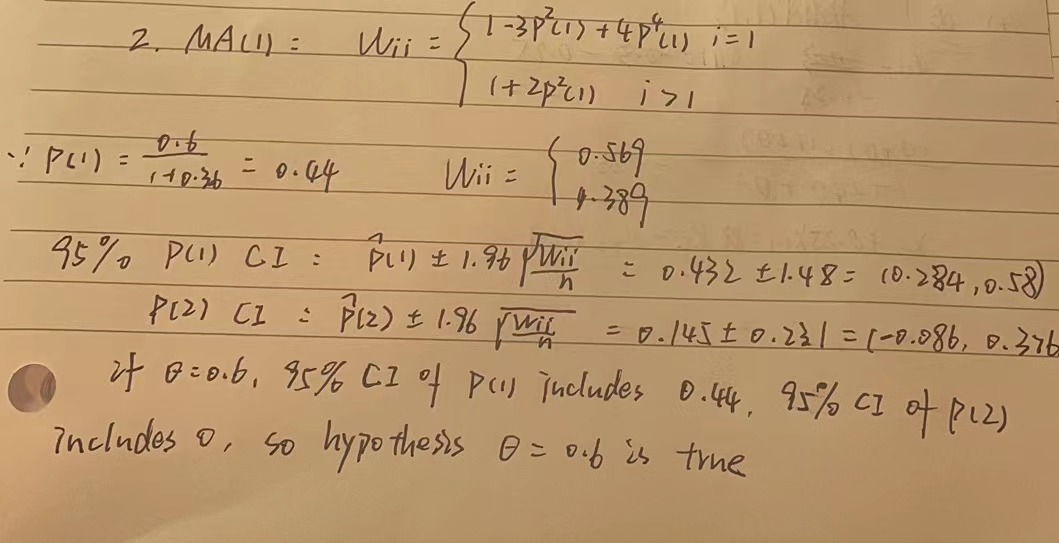 2. MA(1) = Wii = { 1-3ρ²(1) + 4ρ⁴(1) i=1
1+2ρ²(1) i>1
∵ ρ(1) = 0.6/(1+0.36) = 0.44 Wii = { 0.569
1.389
95% ρ(1) CI : ρ̂(1) ± 1.96 √Wii/n = 0.432 ± 1.48 = (0.284, 0.58)
ρ(2) CI : ρ̂(2) ± 1.96 √Wii/n = 0.145 ± 0.231 = (-0.086, 0.376
if θ=0.6, 95% CI of ρ(1) includes 0.44, 95% CI of ρ(2)
includes 0, so hypothesis θ = 0.6 is true